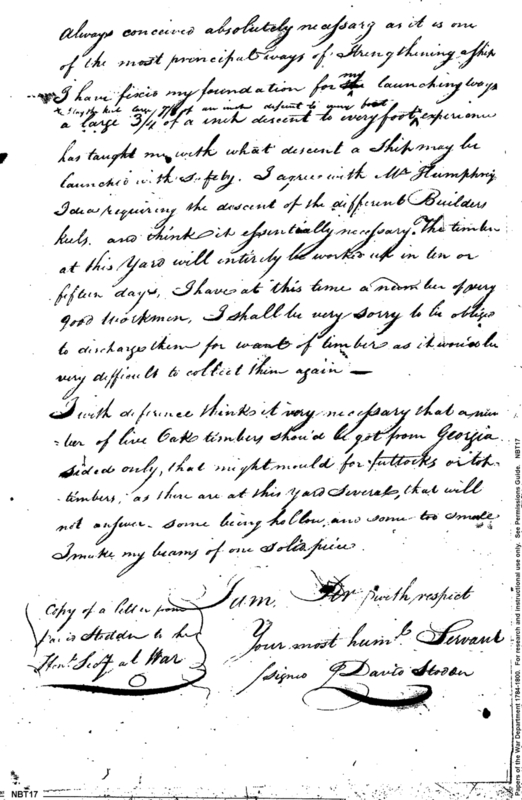 Always conceived absolutely necessary as it is one
of the most principal ways of Strengthening a ship
I have fixed my foundation for my launching ways
& lay the keel large 7/8 of an inch descent to every foot
a large 3/4 of a inch descent to every foot, experience
has taught me with what descent a Ship may be
launched with safety. I agree with Mr Humphrey
Idea requiring the descent of the different Builders
keels, and think it essentially necessary. The timber
at this Yard will entirely be worked up in ten or
fifteen days, I have at this time a number of very
good Workmen, I shall be very sorry to be oblige
to discharge them for want of timber as it would be
very difficult to collect them again —
I with deference think it very necessary that a num
-ber of live Oak timbers should be got from Georgia
sided only, that might mould for futtocks or top
timbers, as there are at this yard several, that will
not answer - some being hollow, and some too small
I make my beams of one solid piece
I am, Sir with respect
Your most humle Servant
signed David Stodder
Copy of a letter from
David Stodder to the
Honl Secy at War
NBT17
Papers of the War Department 1784-1800. For research and instructional use only. See Permissions Guide. NBT17